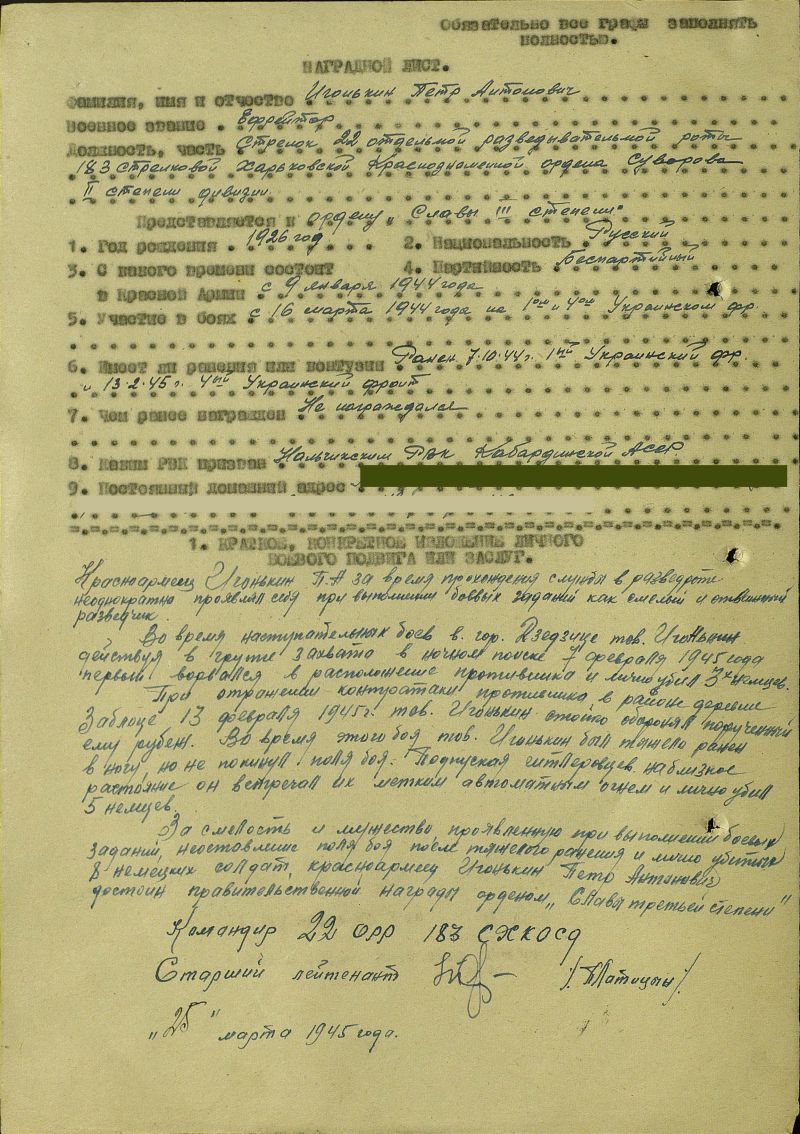 Обязательно все графы заполнять
полностью.
НАГРАДНОЙ ЛИСТ.
Фамилия, имя и отчество Игонькин Петр Антонович
Военное звание Ефрейтор
Должность, часть Стрелок 22 отдельной разведывательной роты
183 стрелковой Харьковской Краснознаменной ордена Суворова
II степени дивизии
Представляется к ордену „Славы III степени"
1. Год рождения 1926 год 2. Национальность Русский
3. С какого времени состоит 4. Партийность Беспартийный
в Красной Армии с 9 января 1944 года
5. Участие в боях с 16 марта 1944 года на 1ом и 4ом Украинском фр.
6. Имеет ли ранения или контузии Ранен 7.10.44г. 1ый Украинский фр.
и 13.2.45г. 4ый Украинский фронт
7. Чем ранее награжден Не награждался
8. Каким РВК призван Нальчикским РВК Кабардинской АССР.
9. Постоянный домашний адрес
1. КРАТКОЕ, КОНКРЕТНОЕ ИЗЛОЖЕНИЕ ЛИЧНОГО
БОЕВОГО ПОДВИГА ИЛИ ЗАСЛУГ.
Красноармеец Игонькин П.А за время прохождения службы в разведроте
неоднократно проявлял себя при выполнении боевых заданий как смелый и отважный
разведчик.
Во время наступательных боев в гор. Дзедзице тов. Игонькин
действуя в группе захвата в ночном поиске 7 февраля 1945 года
первый ворвался в расположение противника и лично убил 3х немцев.
При отражении контратаки противника в районе деревне
Заблоце 13 февраля 1945г. тов. Игонькин стойко оборонял порученный
ему рубеж. Во время этого боя тов. Игонькин был тяжело ранен
в ногу, но не покинул поля боя. Подпуская гитлеровцев на близкое
растояние он встречал их метким автоматным огнем и лично убил
5 немцев.
За смелость и мужество, проявленную при выполнении боевых
заданий, неоставление поля боя после тяжелого ранения и лично убитых
8 немецких солдат, красноармеец Игонькин Петр Антонович
достоин правительственной награды орденом „Славы третьей степени"
Командир 22 ОРР 183 СХКОСД
Старший лейтенант /Латицын/
„25" марта 1945 года.